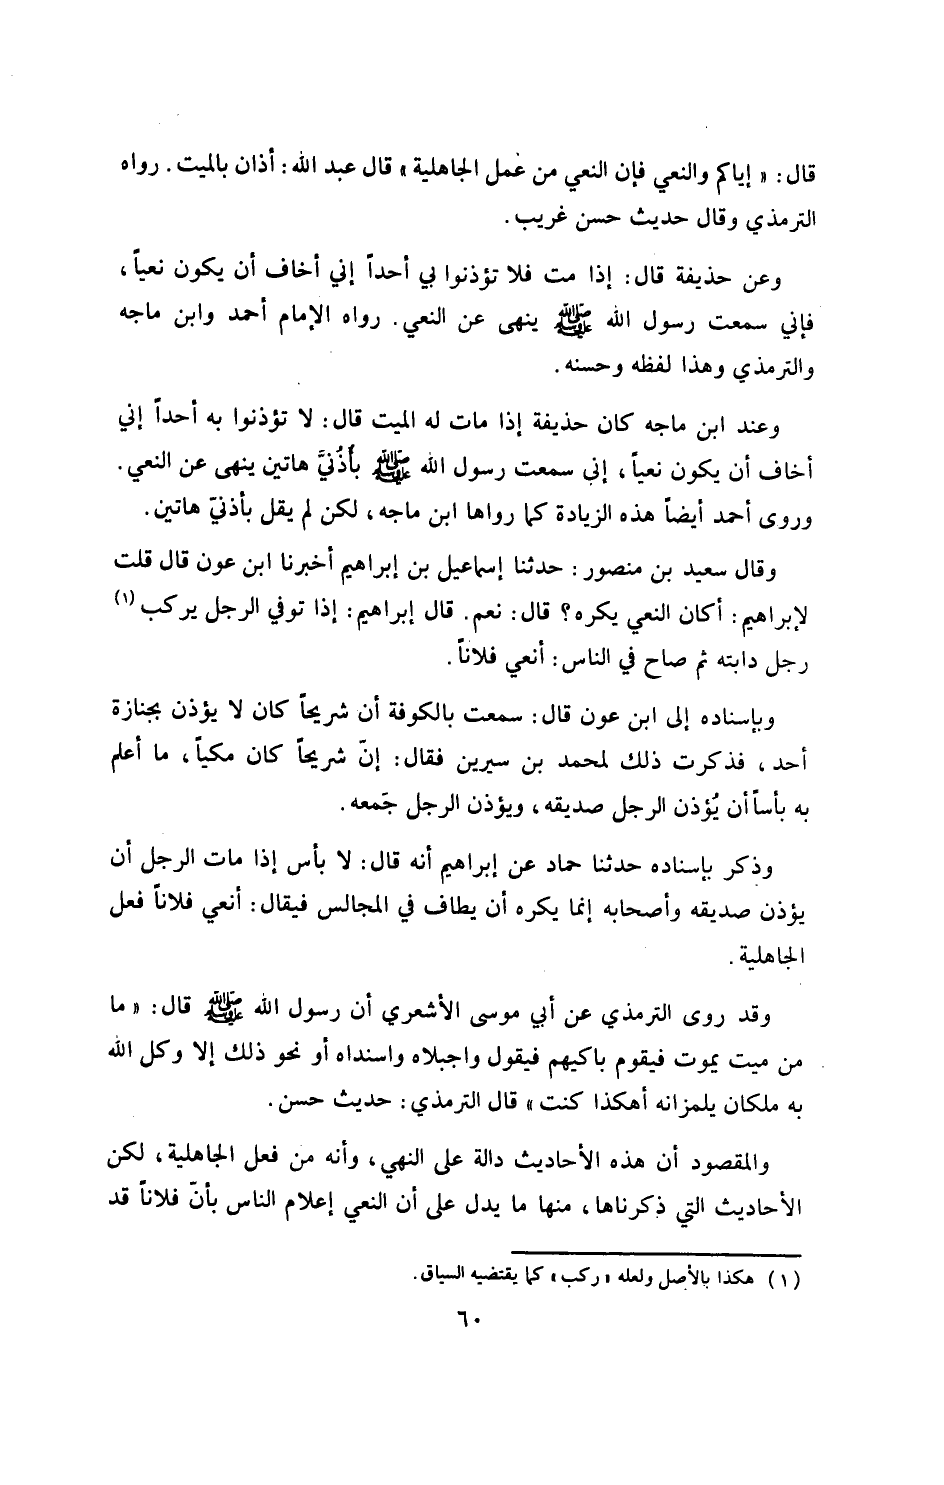 قال : « إياكم والنعي فإن النعي من عمل الجاهلية » قال عبد الله : أذان بالميت . رواه
الترمذي وقال حديث حسن غريب .
وعن حذيفة قال : إذا مت فلا تؤذنوا بي أحداً إني أخاف أن يكون نعياً ،
فإني سمعت رسول الله ﷺ ينهى عن النعي . رواه الإمام أحمد وابن ماجه
والترمذي وهذا لفظه وحسنه .
وعند ابن ماجه كان حذيفة إذا مات له الميت قال : لا تؤذنوا به أحداً إني
أخاف أن يكون نعياً ، إني سمعت رسول الله ﷺ بأُذُنيَّ هاتين ينهى عن النعي .
وروى أحمد أيضاً هذه الزيادة كما رواها ابن ماجه ، لكن لم يقل بأذنيّ هاتين .
وقال سعيد بن منصور : حدثنا إسماعيل بن إبراهيم أخبرنا ابن عون قال قلت
لإبراهيم : أكان النعي يكره؟ قال : نعم . قال إبراهيم : إذا توفي الرجل يركب (١)
رجل دابته ثم صاح في الناس : أنعي فلاناً .
وبإسناده إلى ابن عون قال : سمعت بالكوفة أن شريحاً كان لا يؤذن بجنازة
أحد ، فذكرت ذلك لمحمد بن سيرين فقال : إنّ شريحاً كان مكياً ، ما أعلم
به بأساً أن يُؤذن الرجل صديقه ، ويؤذن الرجل جَمعه .
وذكر بإسناده حدثنا حماد عن إبراهيم أنه قال : لا بأس إذا مات الرجل أن
يؤذن صديقه وأصحابه إنما يكره أن يطاف في المجالس فيقال : أنعي فلاناً فعل
الجاهلية .
وقد روى الترمذي عن أبي موسى الأشعري أن رسول الله ﷺ قال : « ما
من ميت يموت فيقوم باكيهم فيقول واجبلاه واسنداه أو نحو ذلك إلا وكل الله
به ملكان يلمزانه أهكذا كنت » قال الترمذي : حديث حسن .
والمقصود أن هذه الأحاديث دالة على النهي ، وأنه من فعل الجاهلية ، لكن
الأحاديث التي ذكرناها ، منها ما يدل على أن النعي إعلام الناس بأنّ فلاناً قد
(١) هكذا بالأصل ولعله « ركب » كما يقتضيه السياق .
٦٠